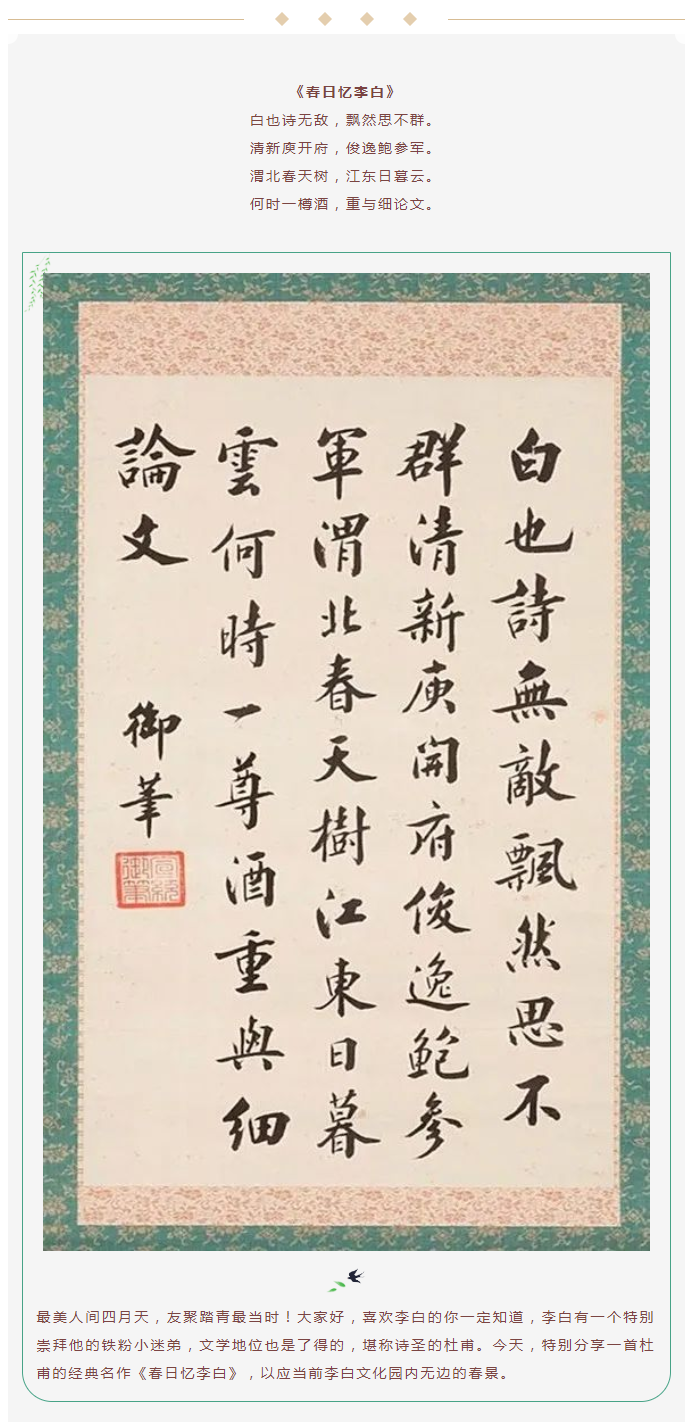 《春日忆李白》
白也诗无敌，飘然思不群。
清新庾开府，俊逸鲍参军。
渭北春天树，江东日暮云。
何时一樽酒，重与细论文。
白也詩無敵飄然思不
群清新庾開府俊逸鲍參
軍渭北春天樹江東日暮
雲何時一尊酒重與細
論文
御筆
宣統
御筆
最美人间四月天，友聚踏青最当时！大家好，喜欢李白的你一定知道，李白有一个特别
崇拜他的铁粉小迷弟，文学地位也是了得的，堪称诗圣的杜甫。今天，特别分享一首杜
甫的经典名作《春日忆李白》，以应当前李白文化园内无边的春景。